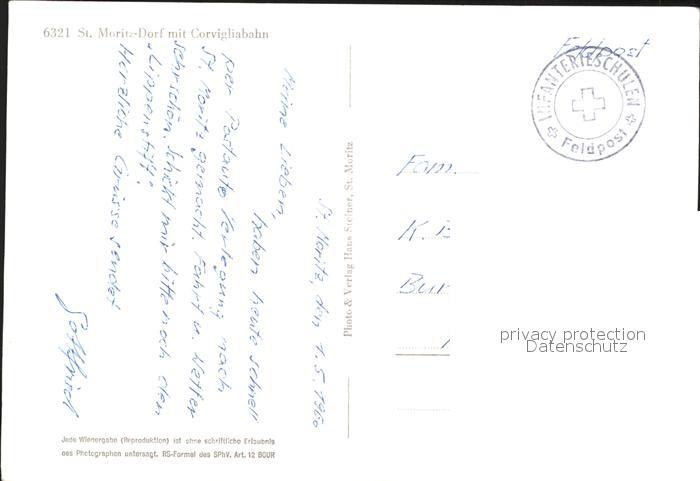 6321 St. Moritz-Dorf mit Corvigliabahn
St. Moritz, den 1.5.1960
Meine Lieben,
haben heute schnell
per Postauto Verlegung nach
St. Moritz gemacht. Fahrt u. Wetter
sehr schön. Schickt mir bitte noch den
Lippenstift.
Herzliche Grüsse sendet
Gottfried
Photo & Verlag Hans Steiner, St. Moritz
Feldpost
INFANTERIESCHULEN
Feldpost
Fam.
K. B
Bur
privacy protection
Datenschutz
Jede Wiedergabe (Reproduktion) ist ohne schriftliche Erlaubnis
des Photographen untersagt. RS-Formel des SPhV. Art. 12 BOUR